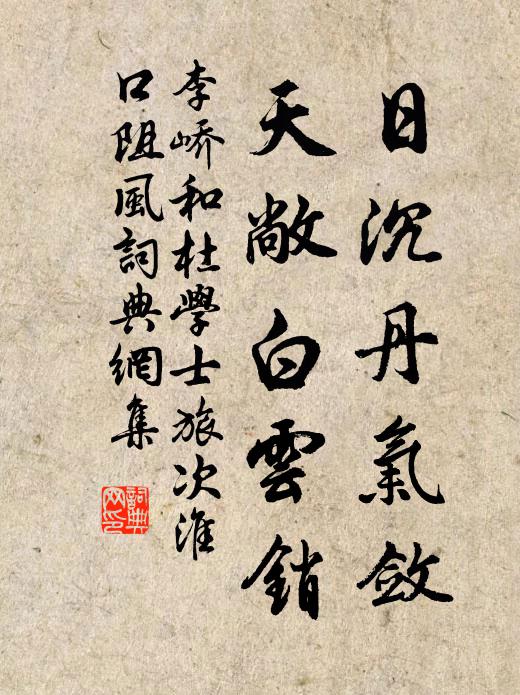 日沉丹氣斂
天敞白雲銷
李嶠和杜學士旅次淮
口阻風詞典網集
詞典網印